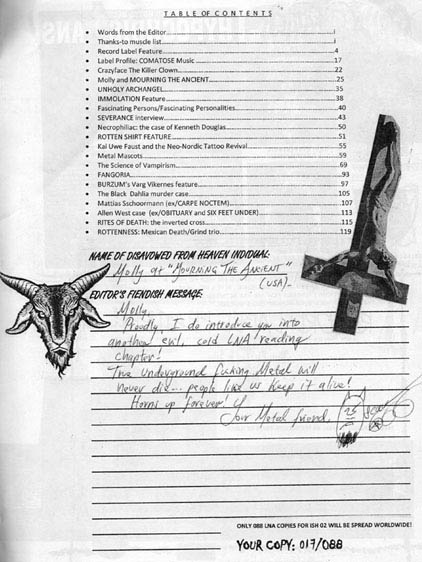 TABLE OF CONTENTS
• Words from the Editor...i
• Thanks-to muscle list...i
• Record Label Feature...4
• Label Profile: COMATOSE Music...17
• Crazyface The Killer Clown...22
• Molly and MOURNING THE ANCIENT...25
• UNHOLY ARCHANGEL...35
• IMMOLATION Feature...38
• Fascinating Persons/Fascinating Personalities...40
• SEVERANCE interview...43
• Necrophiliac: the case of Kenneth Douglas...50
• ROTTEN SHIRT FEATURE...51
• Kai Uwe Faust and the Neo-Nordic Tattoo Revival...55
• Metal Mascots...59
• The Science of Vampirism...69
• FANGORIA...93
• BURZUM's Varg Vikernes feature...97
• The Black Dahlia murder case...105
• Mattias Sschoormann (ex/CARPE NOCTEM)...107
• Allen West case (ex/OBITUARY and SIX FEET UNDER)...113
• RITES OF DEATH: the inverted cross...115
• ROTTENNESS: Mexican Death/Grind trio...119
NAME OF DISAVOWED FROM HEAVEN INDIDUAL:
Molly at "MOURNING THE ANCIENT"
(USA)-
EDITOR'S FIENDISH MESSAGE:
Molly,
Proudly, I do introduce you into
another evil, cold LNA reading
chapter!
True Underground fucking Metal will
never die... people like us keep it alive!
Horns up forever!
Your Metal friend,
ONLY 088 LNA COPIES FOR ISH 02 WILL BE SPREAD WORLDWIDE!
YOUR COPY: 017/088